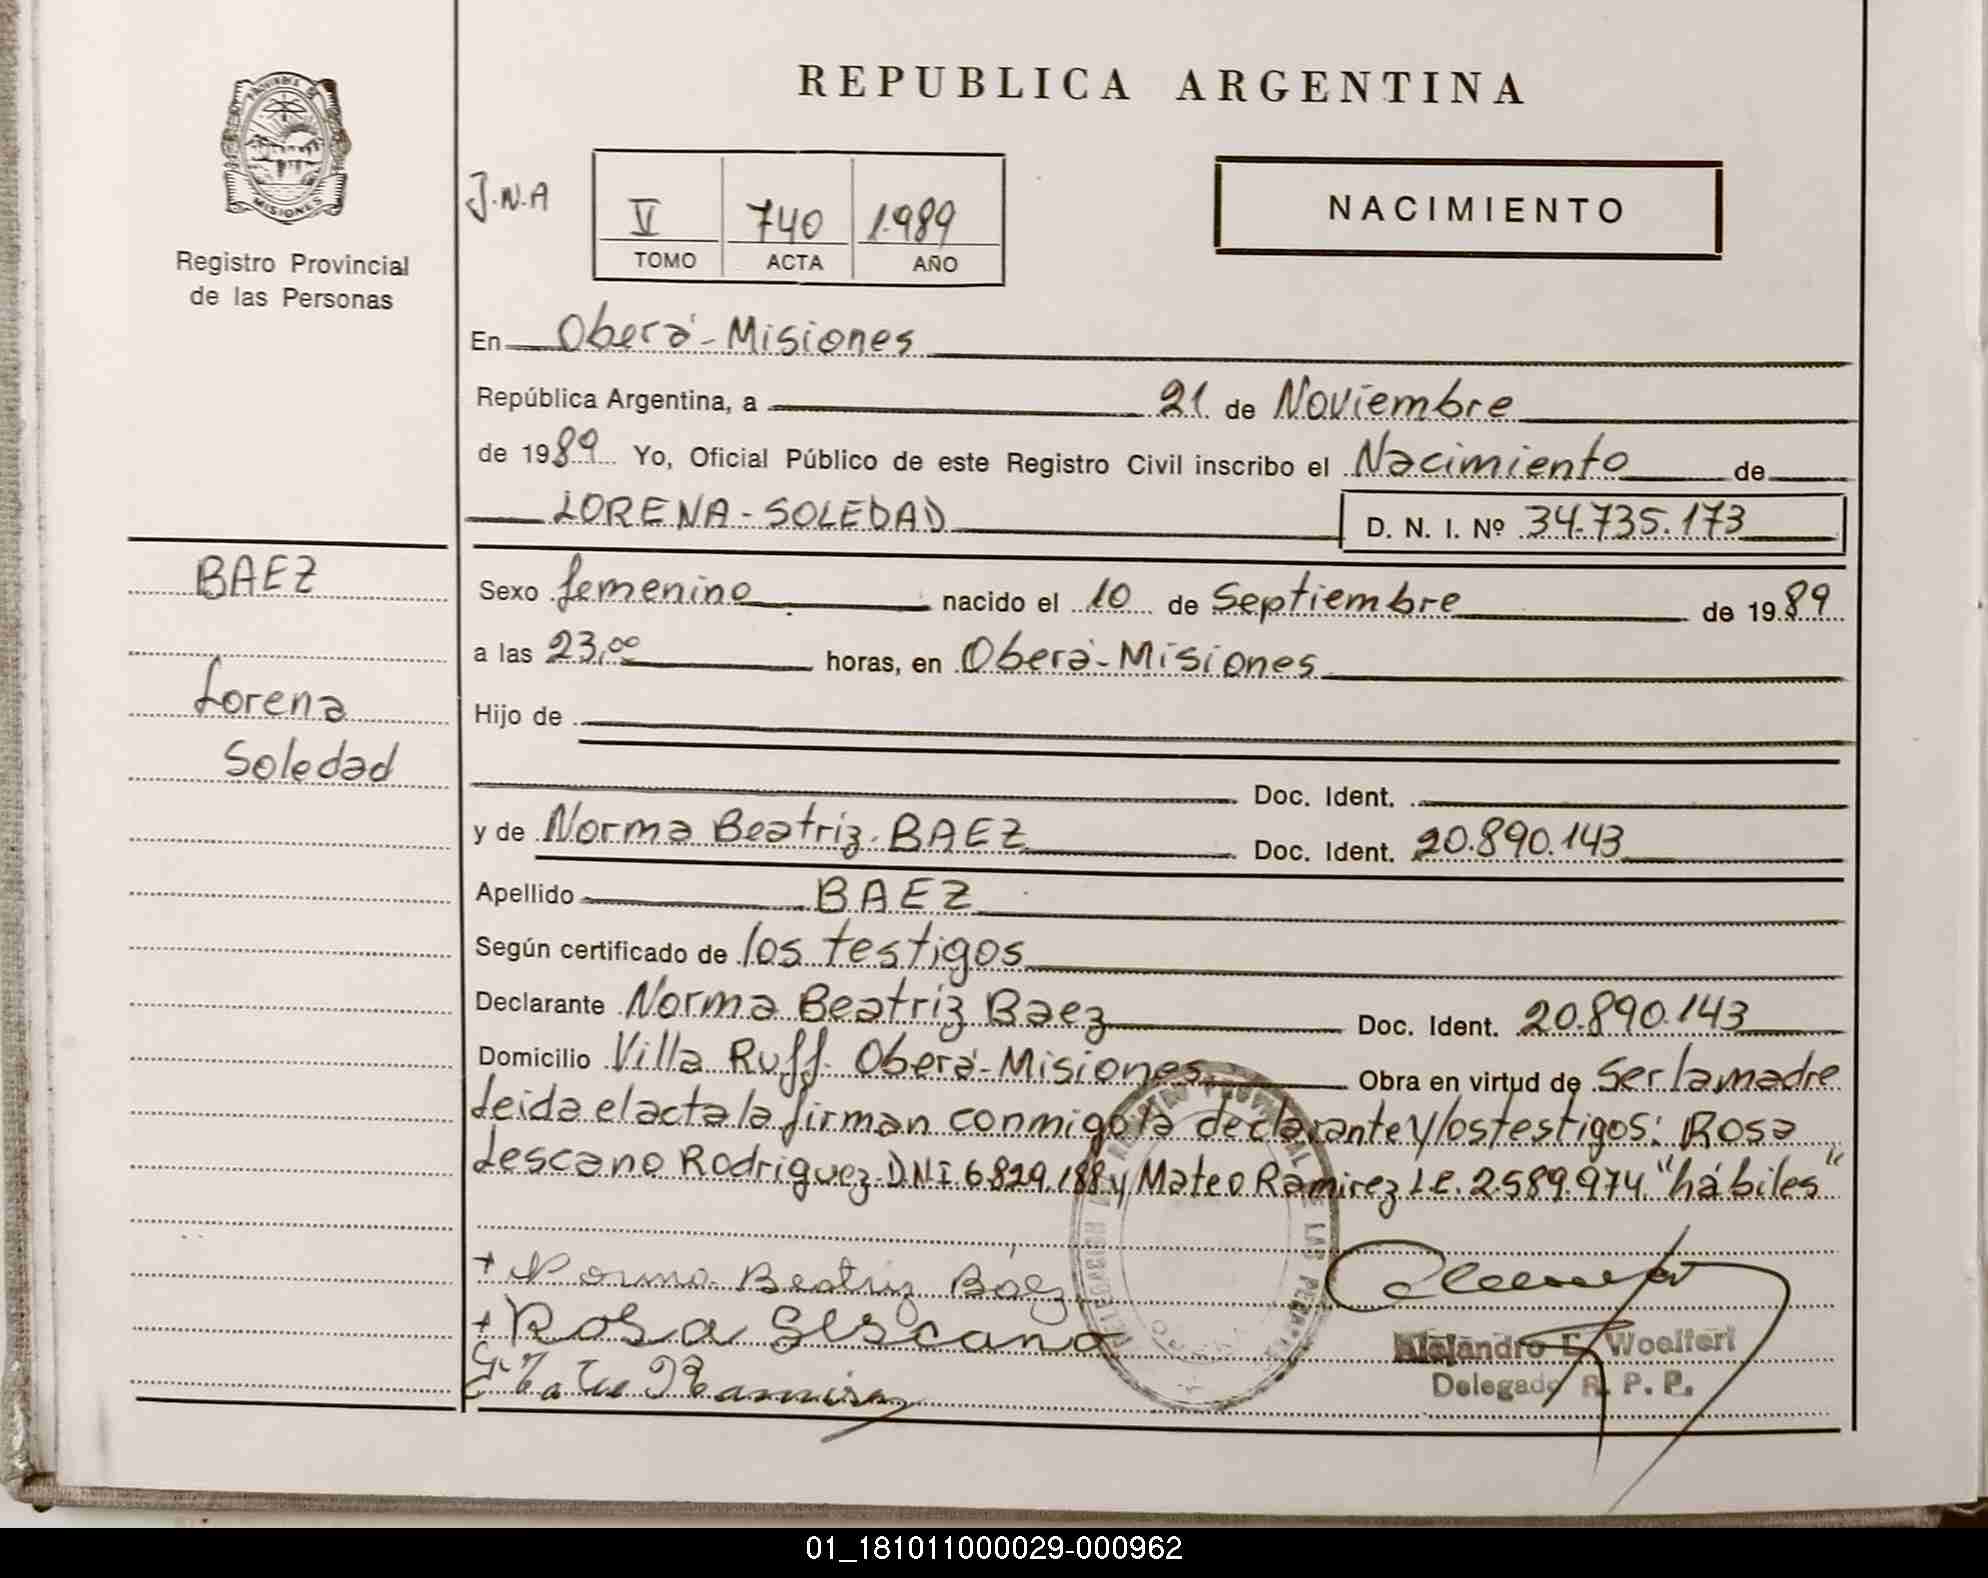 REPUBLICA ARGENTINA
PROVINCIA DE
MISIONES
Registro Provincial
de las Personas
J.N.A
V 740 1.989
TOMO ACTA AÑO
NACIMIENTO
En Oberá - Misiones
República Argentina, a 21 de Noviembre
de 1989 Yo, Oficial Público de este Registro Civil inscribo el Nacimiento de
LORENA - SOLEDAD D. N. I. Nº 34.735.173
BAEZ
Lorena
Soledad
Sexo femenino nacido el 10 de Septiembre de 1989
a las 23,00 horas, en Oberá - Misiones
Hijo de
Doc. Ident.
y de Norma Beatriz. BAEZ Doc. Ident. 20.890.143
Apellido BAEZ
Según certificado de los testigos
Declarante Norma Beatriz Baez Doc. Ident. 20.890.143
Domicilio Villa Ruff. Oberá - Misiones Obra en virtud de Ser la madre
Leida el acta la firman conmigo la declarante y los testigos: Rosa
Lescano Rodriguez D.N.I 6.829.188 y Mateo Ramirez L.E. 2.589.974. "hábiles"
+ Norma Beatriz Báez
+ Rosa Lescano
Ramirez
REGISTRO PROVINCIAL DE LAS PERSONAS
Alejandro E. Woelfert
Delegado R. P. P.
01_181011000029-000962